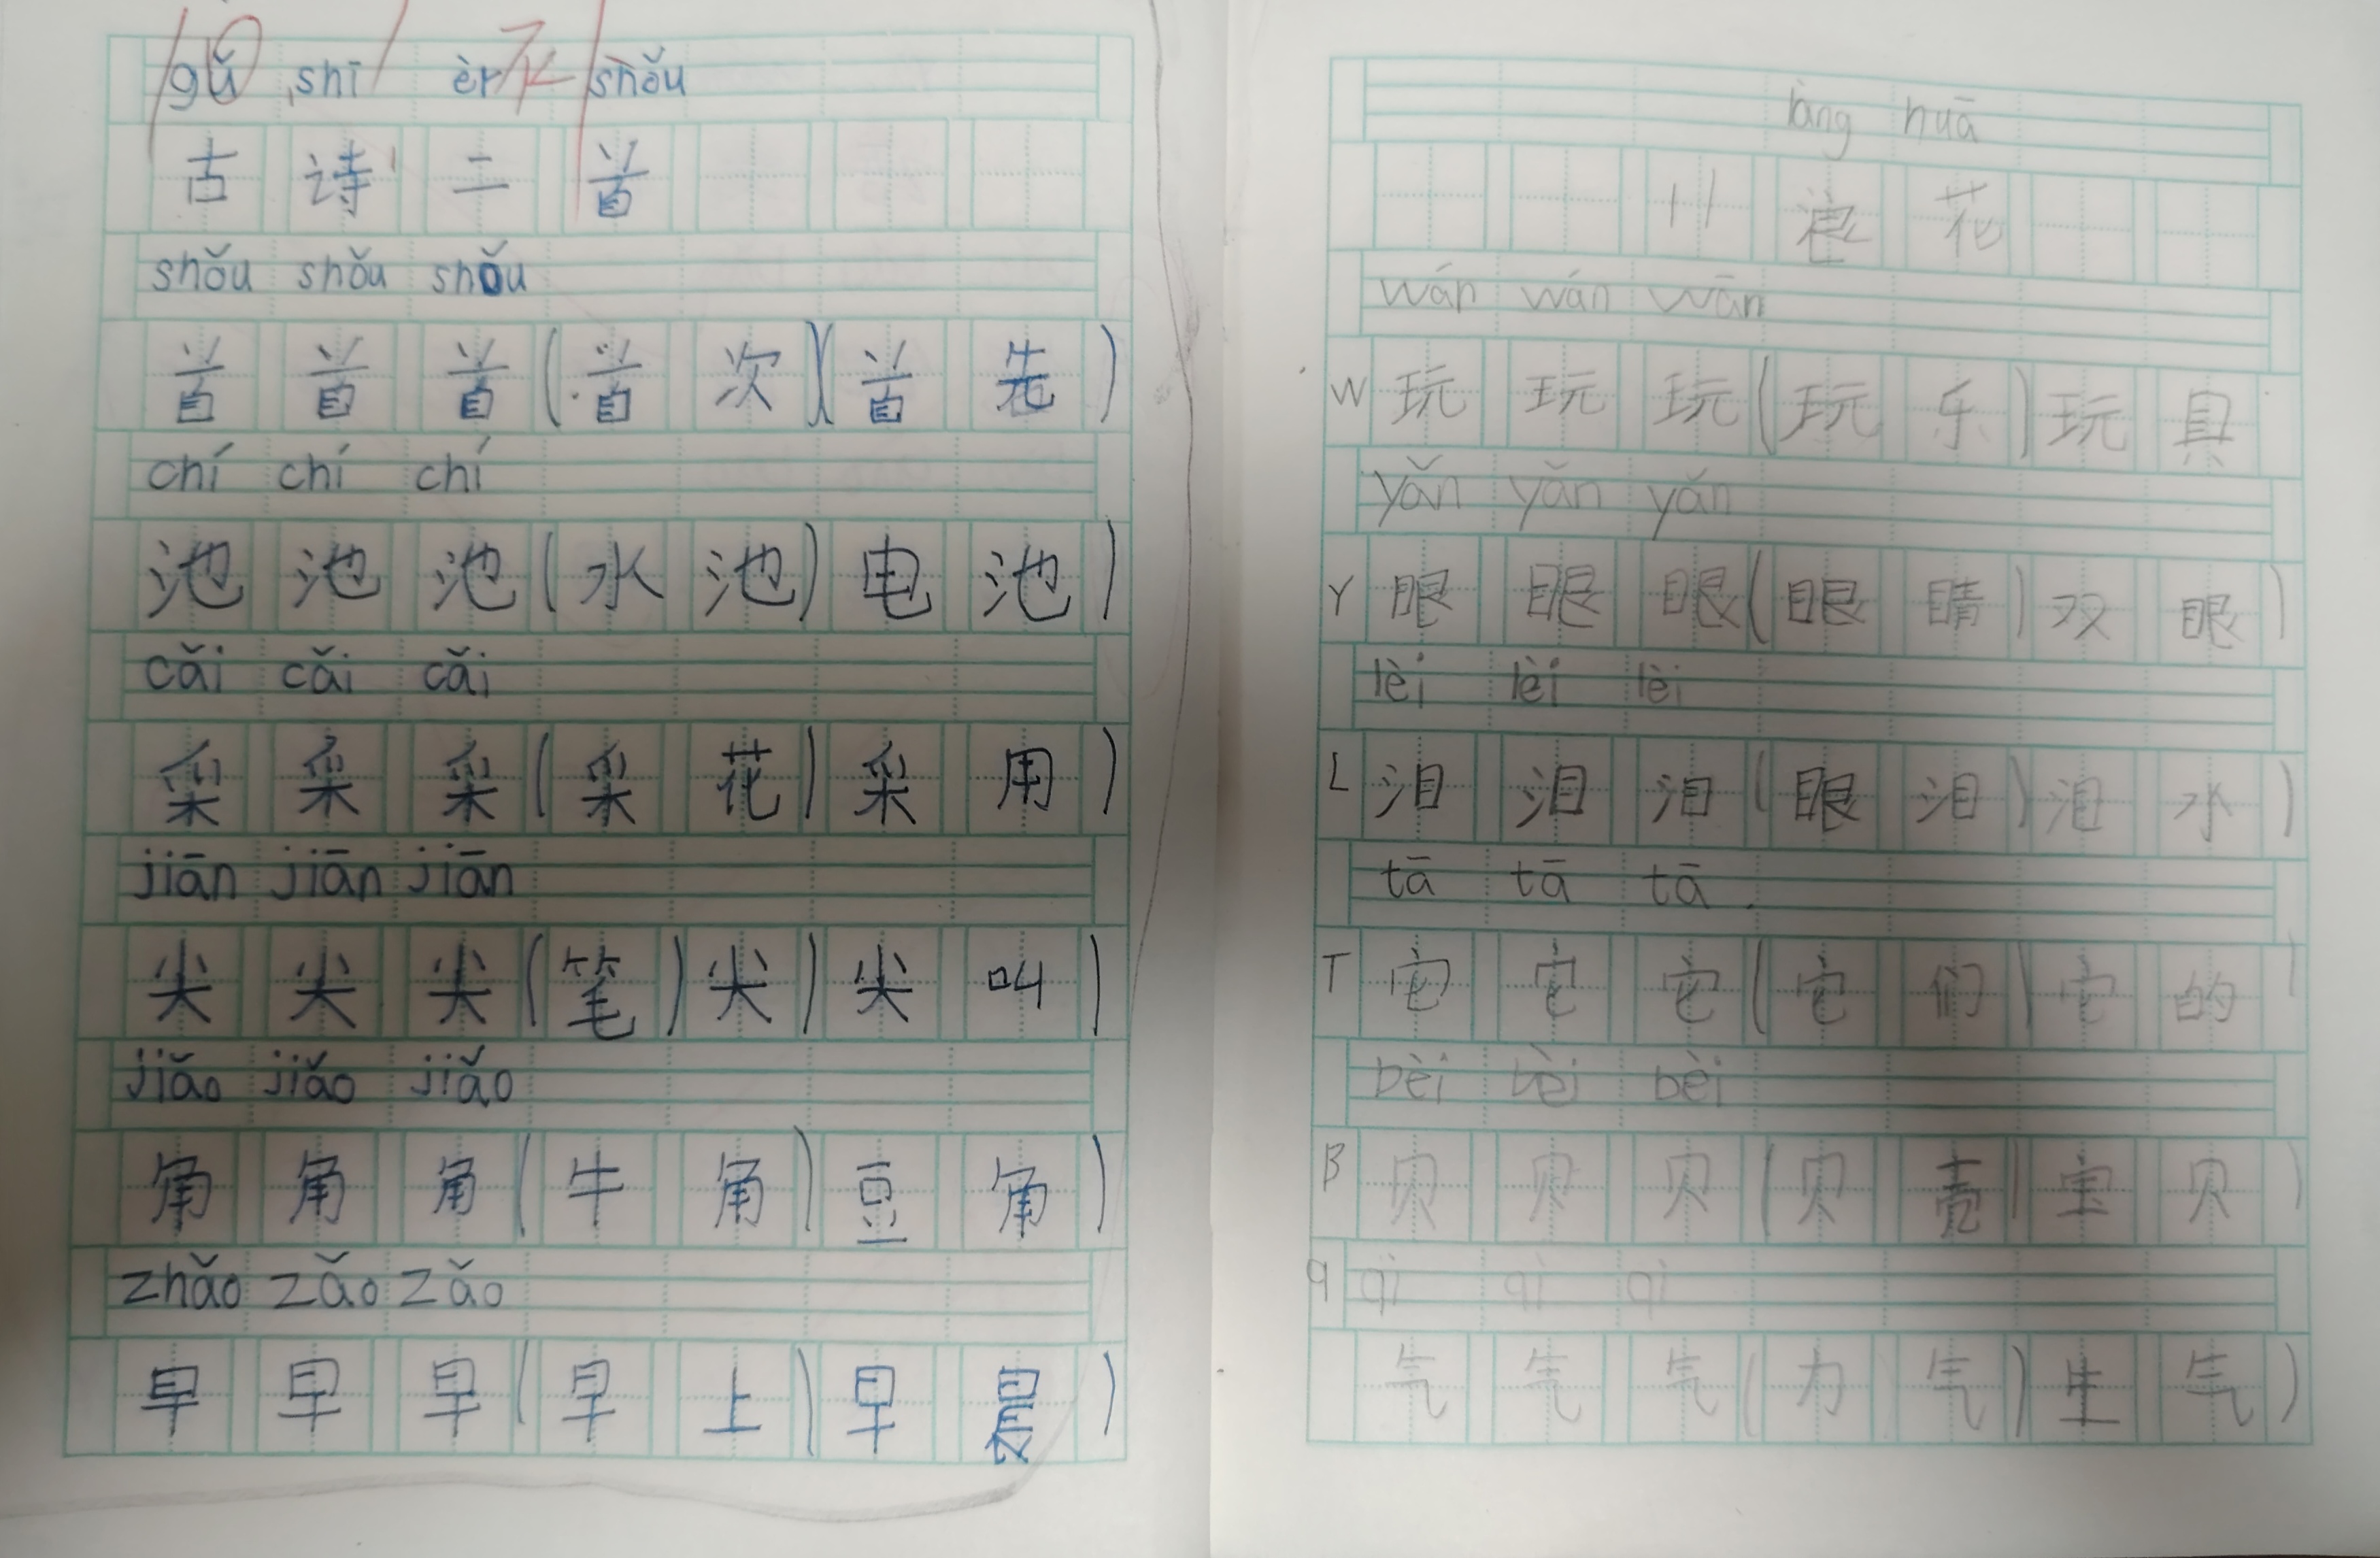 gǔ shī èr shǒu
古 诗 二 首
shǒu shǒu shǒu
首 首 首 ( 首 次 ) ( 首 先 )
chí chí chí
池 池 池 ( 水 池 ) 电 池 )
cǎi cǎi cǎi
采 采 采 ( 采 花 ) 采 用 )
jiān jiān jiān
尖 尖 尖 ( 笔 ) 尖 ) 尖 叫 )
jiǎo jiǎo jiǎo
角 角 角 ( 牛 角 ) 豆 角 )
zhǎo zǎo zǎo
早 早 早 ( 早 上 ) 早 晨 )
làng huā
11 浪 花
wán wán wān
W 玩 玩 玩 ( 玩 乐 ) 玩 具
yǎn yǎn yǎn
Y 眼 眼 眼 ( 眼 睛 ) 双 眼 )
lèi lèi lèi
L 泪 泪 泪 ( 眼 泪 ) 泪 水 )
tā tā tā
T 它 它 它 ( 它 们 ) 它 的 )
bèi bèi bèi
B 贝 贝 贝 ( 贝 壳 ) 宝 贝 )
q qì qì qì
气 气 气 ( 力 气 ) 生 气 )